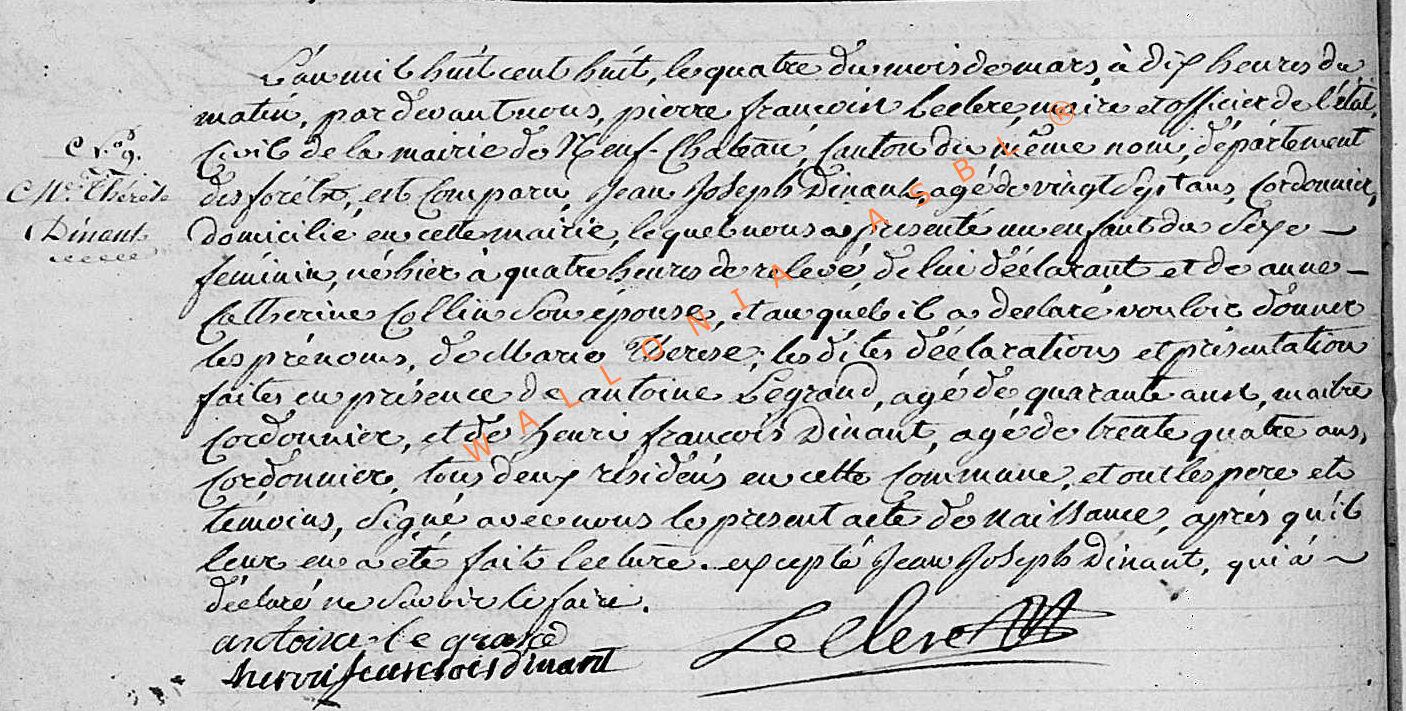 N.º 9.
M.ie Thérèse
Dinant
L'an mil huit cent huit, le quatre du mois de mars, à dix heures du
matin, par devant nous, pierre françois Leclerc, maire et officier de l'état
Civil de la mairie de Neuf-Chateau, Canton du même nom, département
des forêts, est Comparu, Jean Joseph Dinant, agé de vingt Sept ans, Cordonnier,
domicilié en cette mairie, lequel nous a présenté un enfant du Sexe
féminin, né hier à quatre heures de relevé, de lui déclarant et de anne
Catherine Collin Son épouse, et auquel il a declaré vouloir donner
les prénoms, de Marie Therese; les dites déclarations et présentation
faites en présence de antoine Legrand, agé de quarante ans, maitre
Cordonnier, et de henri françois Dinant, agé de trente quatre ans,
Cordonnier, tous deux résidens en cette Commune, et ont les pere et
temoins, Signé avec nous le present acte de naissance, après qu'il
leur en a été fait lecture. excepté Jean Joseph Dinant, qui à
déclaré ne Savoir le faire.
antoine le grand
henri francois dinant
Le Clerc
WALLONIA ASBL ®